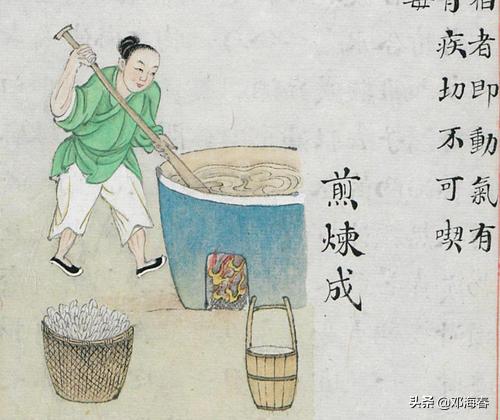 者即動氣有
有疾切不可喫
煎煉成
头条 @邓海春